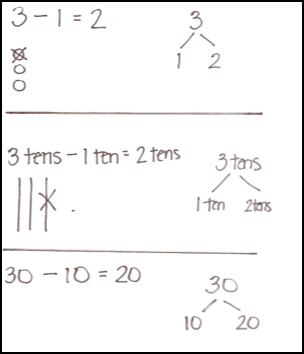 3 - 1 = 2
3
1 2
3 tens - 1 ten = 2 tens
3 tens
1 ten 2 tens
30 - 10 = 20
30
10 20